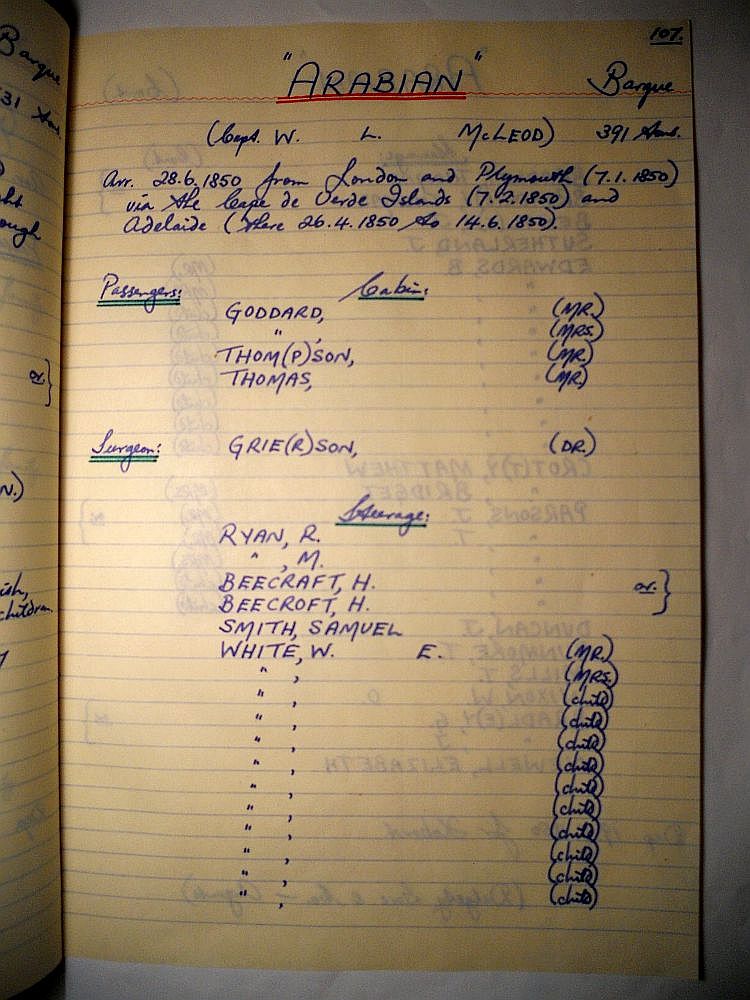 107.
"ARABIAN" Barque
(Capt. W. L. McLEOD) 391 tons.
Arr. 28.6.1850 from London and Plymouth (7.1.1850)
via the Cape de Verde Islands (7.2.1850) and
Adelaide (there 26.4.1850 to 14.6.1850).
Passengers: Cabin:
GODDARD, (MR.)
" , (MRS.)
THOM(P)SON, (MR.)
THOMAS, (MR.)
Surgeon: GRIE(R)SON, (DR.)
Steerage:
RYAN, R.
" , M.
BEECRAFT, H. or. }
BEECROFT, H.
SMITH, SAMUEL
WHITE, W. E. (MR.)
" , (MRS.)
" , (child)
" , (child)
" , (child)
" , (child)
" , (child)
" , (child)
" , (child)
" , (child)
" , (child)
" , (child)
Barque
or. }
children